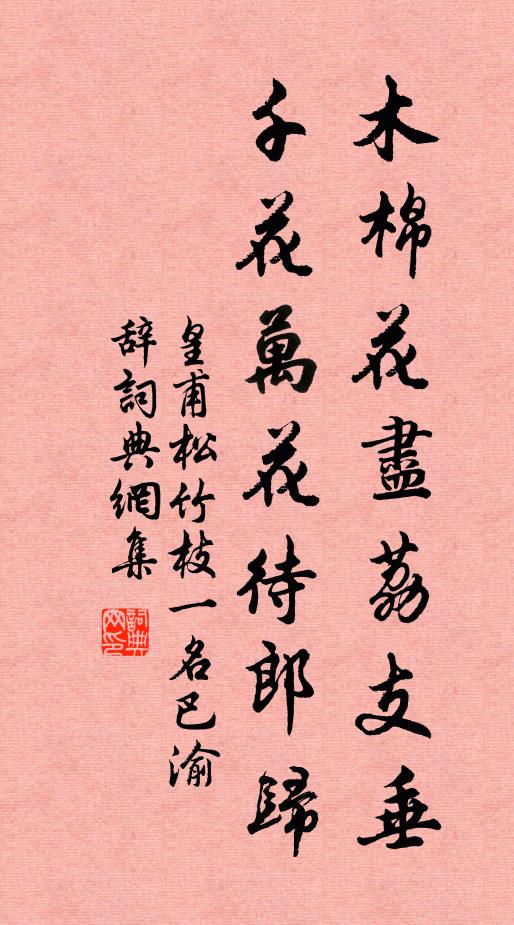 木棉花盡荔支垂
千花萬花待郎歸
皇甫松竹枝一名巴渝
辞詞典網集
詞典网印